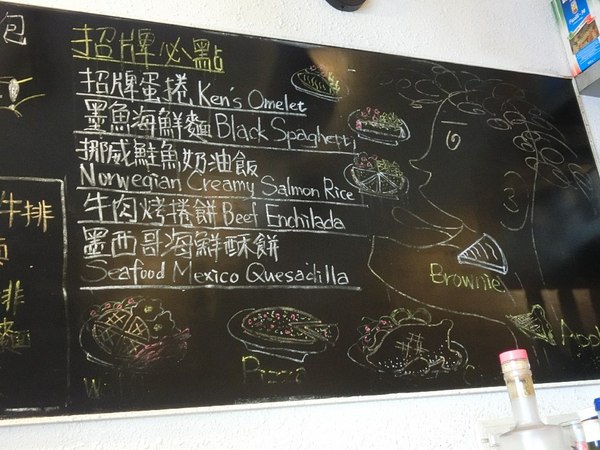 包
招牌必點
招牌蛋捲 Ken's Omelet
墨魚海鮮麵 Black Spaghetti
挪威鮭魚奶油飯
Norwegian Creamy Salmon Rice
牛肉烤捲餅 Beef Enchilada
墨西哥海鮮酥餅
Seafood Mexico Quesadilla
牛排
排
麵
Brownie
Pizza